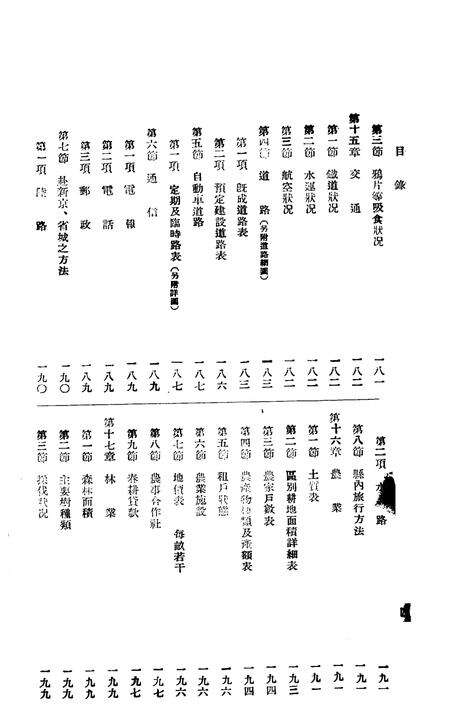 目錄
第三節 鴉片等吸食狀況 一八一
第十五章 交通 一八二
第一節 鐵道狀況 一八二
第二節 水運狀況 一八二
第三節 航空狀況 一八二
第四節 道路(另附道路網圖) 一八三
第一項 既成道路表 一八三
第二項 預定建設道路表 一八六
第五節 自動車道路 一八七
第一項 定期及臨時路表(另附詳圖) 一八七
第六節 通信 一八九
第一項 電報 一八九
第二項 電話 一八九
第三項 郵政 一八九
第七節 赴新京、省城之方法 一九〇
第一項 陸路 一九〇
第二項 水路 一九一
第八節 縣內旅行方法 一九一
第十六章 農業 一九一
第一節 土質表 一九一
第二節 區別耕地面積詳細表 一九三
第三節 農家戶數表 一九四
第四節 農產物種類及產額表 一九四
第五節 租戶狀態 一九六
第六節 農業施設 一九六
第七節 地價表 每畝若干 一九六
第八節 農事合作社 一九七
第九節 春耕貸款 一九七
第十七章 林業 一九九
第一節 森林面積 一九九
第二節 主要樹種類 一九九
第三節 採伐狀況 一九九